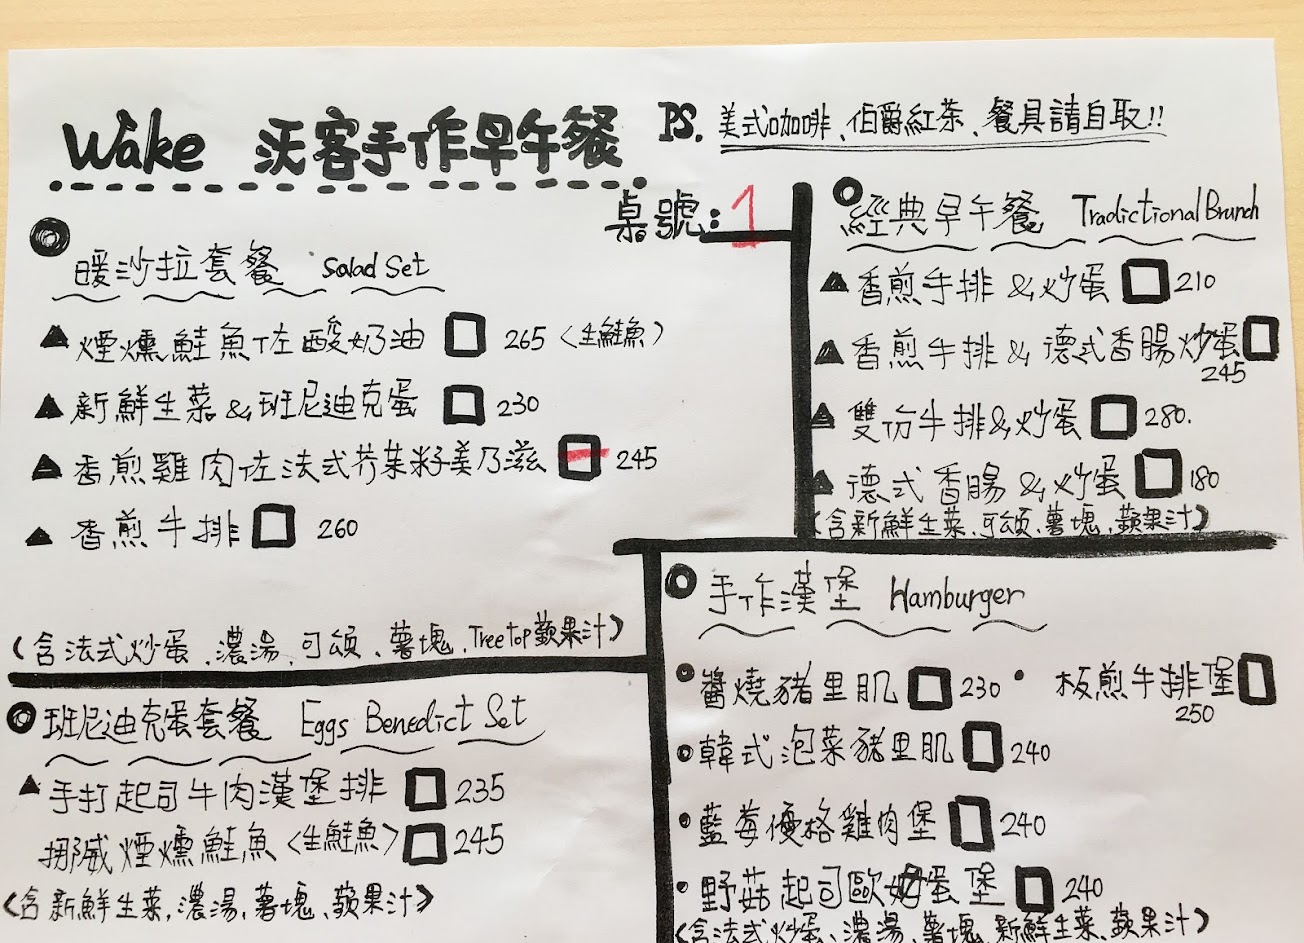 Wake 沃客手作早午餐
PS. 美式咖啡、伯爵紅茶、餐具請自取!!
桌號:1
暖沙拉套餐 Salad Set
煙燻鮭魚佐酸奶油 265 〈生鮭魚〉
新鮮生菜&班尼迪克蛋 230
香煎雞肉佐法式芥茉籽美乃滋 245
香煎牛排 260
(含法式炒蛋、濃湯、可頌、薯塊、Treetop蘋果汁)
班尼迪克蛋套餐 Eggs Benedict Set
手打起司牛肉漢堡排 235
挪威煙燻鮭魚〈生鮭魚〉 245
(含新鮮生菜、濃湯、薯塊、蘋果汁)
經典早午餐 Tradictional Brunch
香煎牛排&炒蛋 210
香煎牛排&德式香腸炒蛋
245
雙份牛排&炒蛋 280.
德式香腸&炒蛋 180
(含新鮮生菜、可頌、薯塊、蘋果汁)
手作漢堡 Hamburger
醬燒豬里肌 230 • 板煎牛排堡
250
韓式泡菜豬里肌 240
藍莓優格雞肉堡 240
野菇起司歐姆蛋堡 240
(含法式炒蛋、濃湯、薯塊、新鮮生菜、蘋果汁)